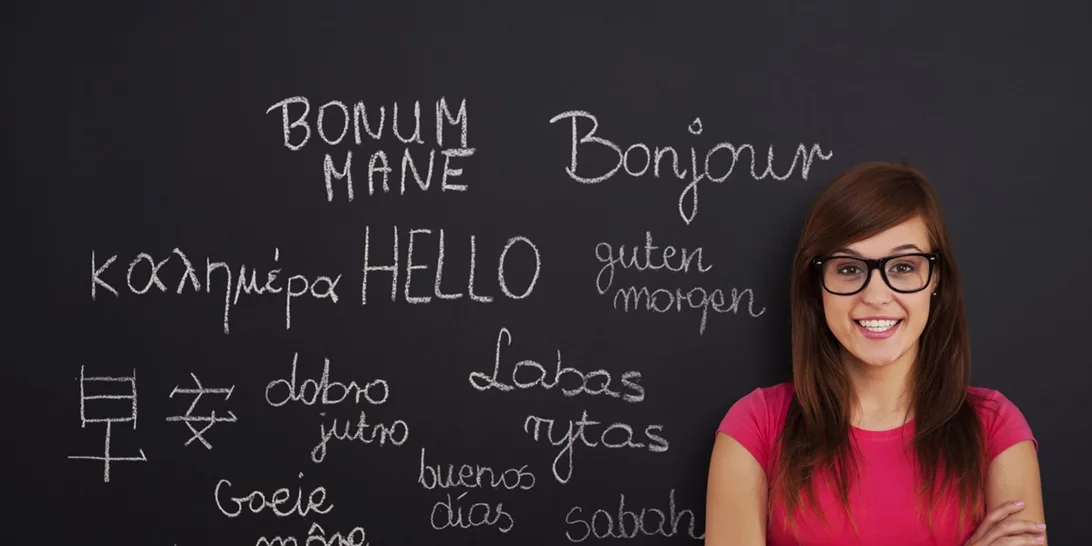 BONUM
MANE
Bonjour
καλημέρα
HELLO
guten
morgen
早安
dobro
jutro
Labas
rytas
buenos
días
Goeie
môre
sabah